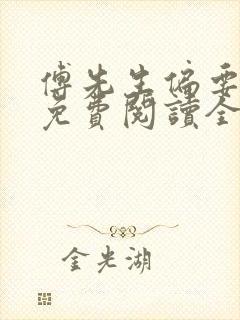 傅先生偏要
免費閱讀全
金光湖